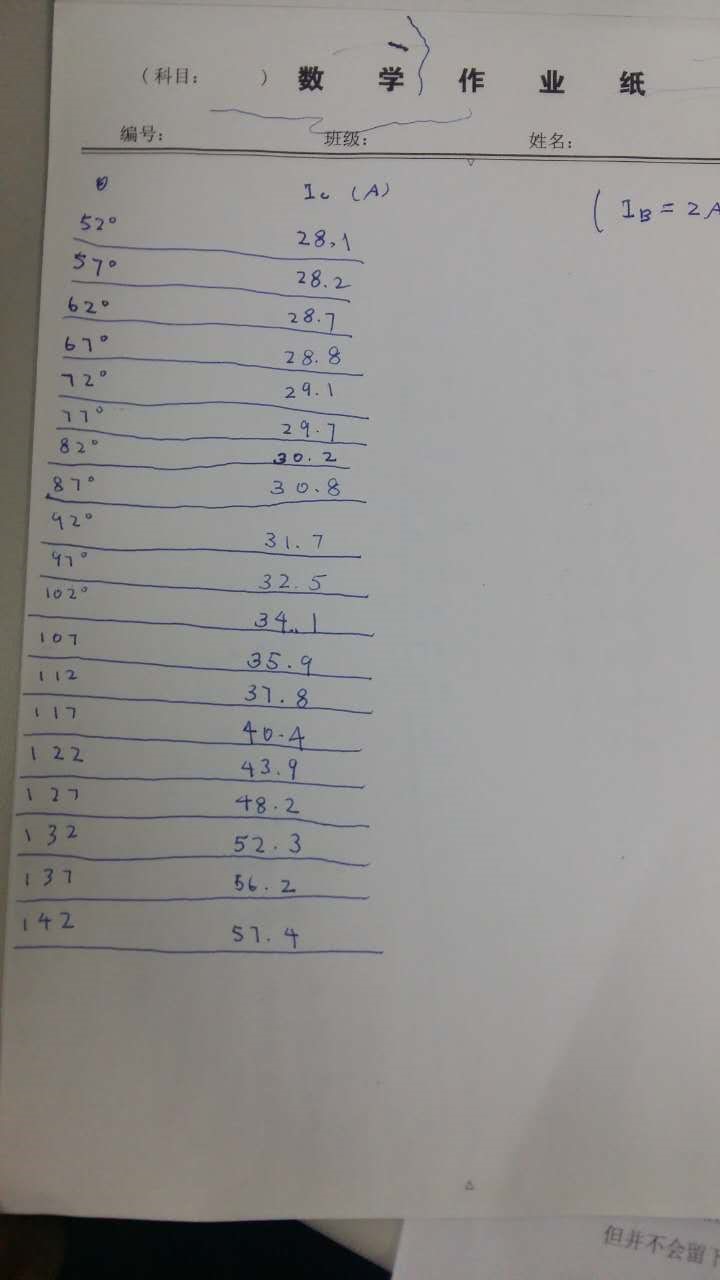 (科目: ) 数学作业纸
编号: 班级: 姓名:
θ Ic (A) ( IB = 2A
52° 28.1
57° 28.2
62° 28.7
67° 28.8
72° 29.1
77° 29.7
82° 30.2
87° 30.8
92° 31.7
97° 32.5
102° 34.1
107 35.9
112 37.8
117 40.4
122 43.9
127 48.2
132 52.3
137 56.2
142 57.4
但并不会留下